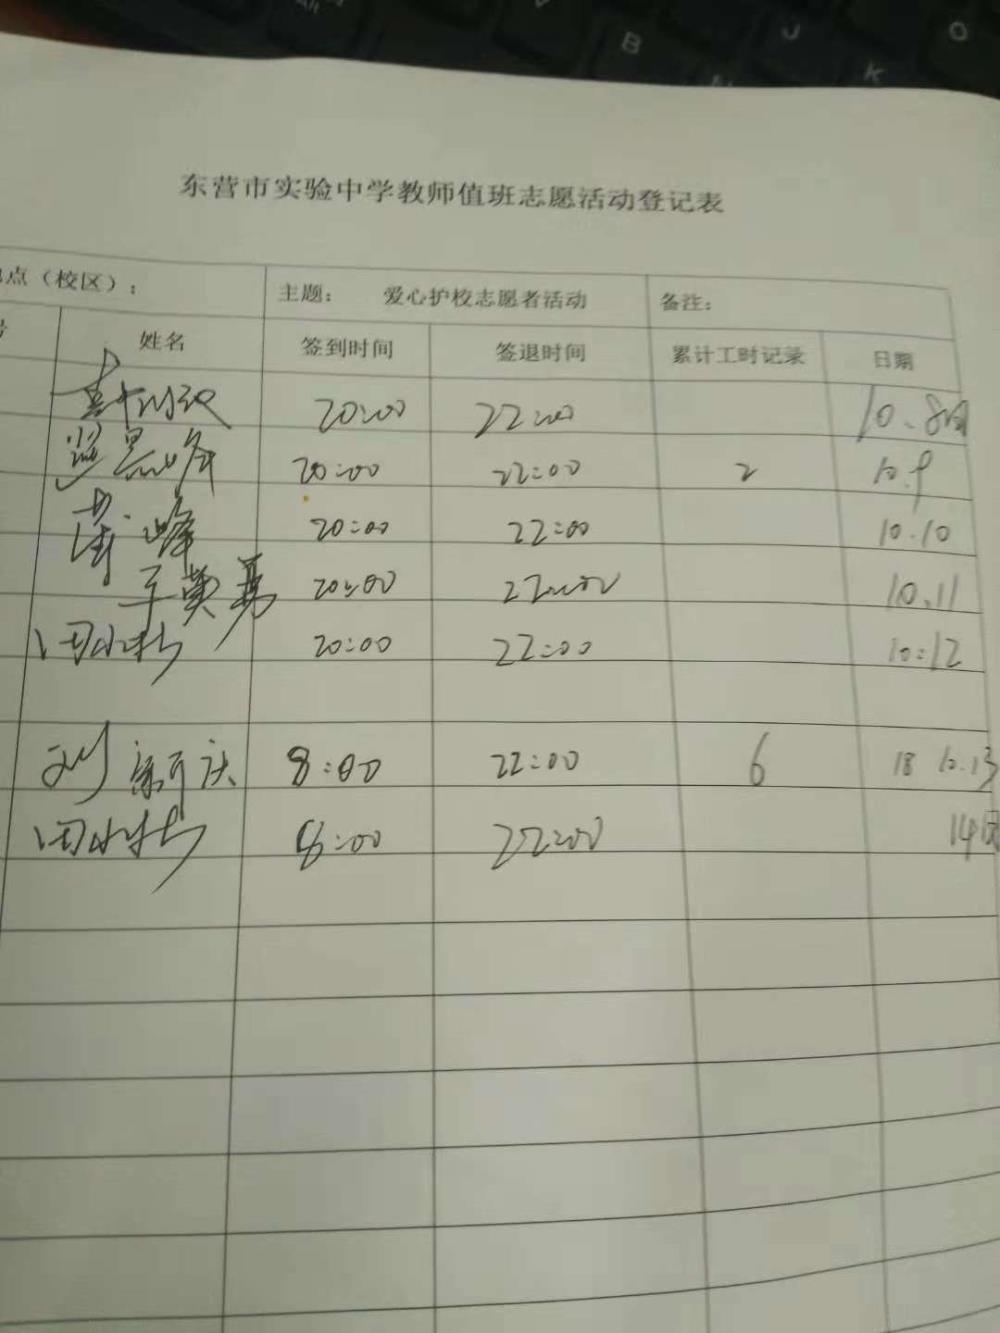 东营市实验中学教师值班志愿活动登记表
点（校区）： 主题： 爱心护校志愿者活动 备注：
号 姓名 签到时间 签退时间 累计工时记录 日期
20:00 22:00 10.8
20:00 22:00 2 10.9
峰 20:00 22:00 10.10
20:00 22:00 10.11
20:00 22:00 10:12
刘新庆 8:00 22:00 6 18 10.13
8:00 22:00 14日